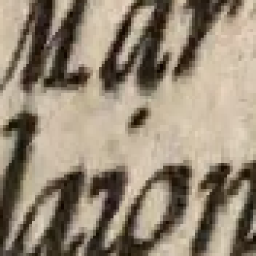 Mar
laion